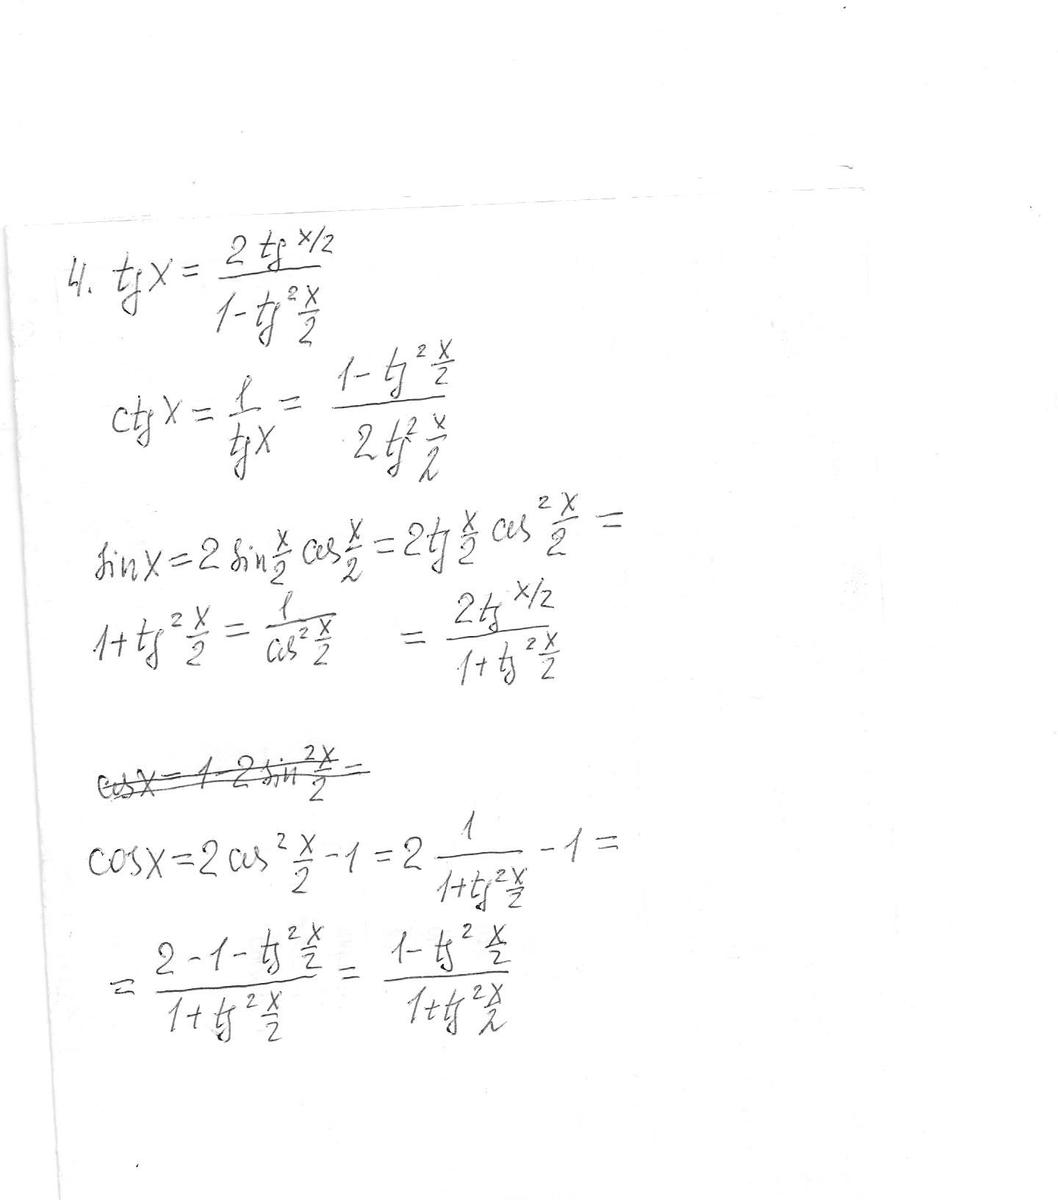 4. tg x = \frac{2 tg x/2}{1 - tg^2 \frac{x}{2}}
ctg x = \frac{1}{tg x} = \frac{1 - tg^2 \frac{x}{2}}{2 tg^2 \frac{x}{2}}
sin x = 2 sin \frac{x}{2} cos \frac{x}{2} = 2 tg \frac{x}{2} cos^2 \frac{x}{2} =
1 + tg^2 \frac{x}{2} = \frac{1}{cos^2 \frac{x}{2}} = \frac{2 tg x/2}{1 + tg^2 \frac{x}{2}}
cos x = 1 - 2 sin^2 \frac{x}{2} =
cos x = 2 cos^2 \frac{x}{2} - 1 = 2 \frac{1}{1 + tg^2 \frac{x}{2}} - 1 =
= \frac{2 - 1 - tg^2 \frac{x}{2}}{1 + tg^2 \frac{x}{2}} = \frac{1 - tg^2 \frac{x}{2}}{1 + tg^2 \frac{x}{2}}